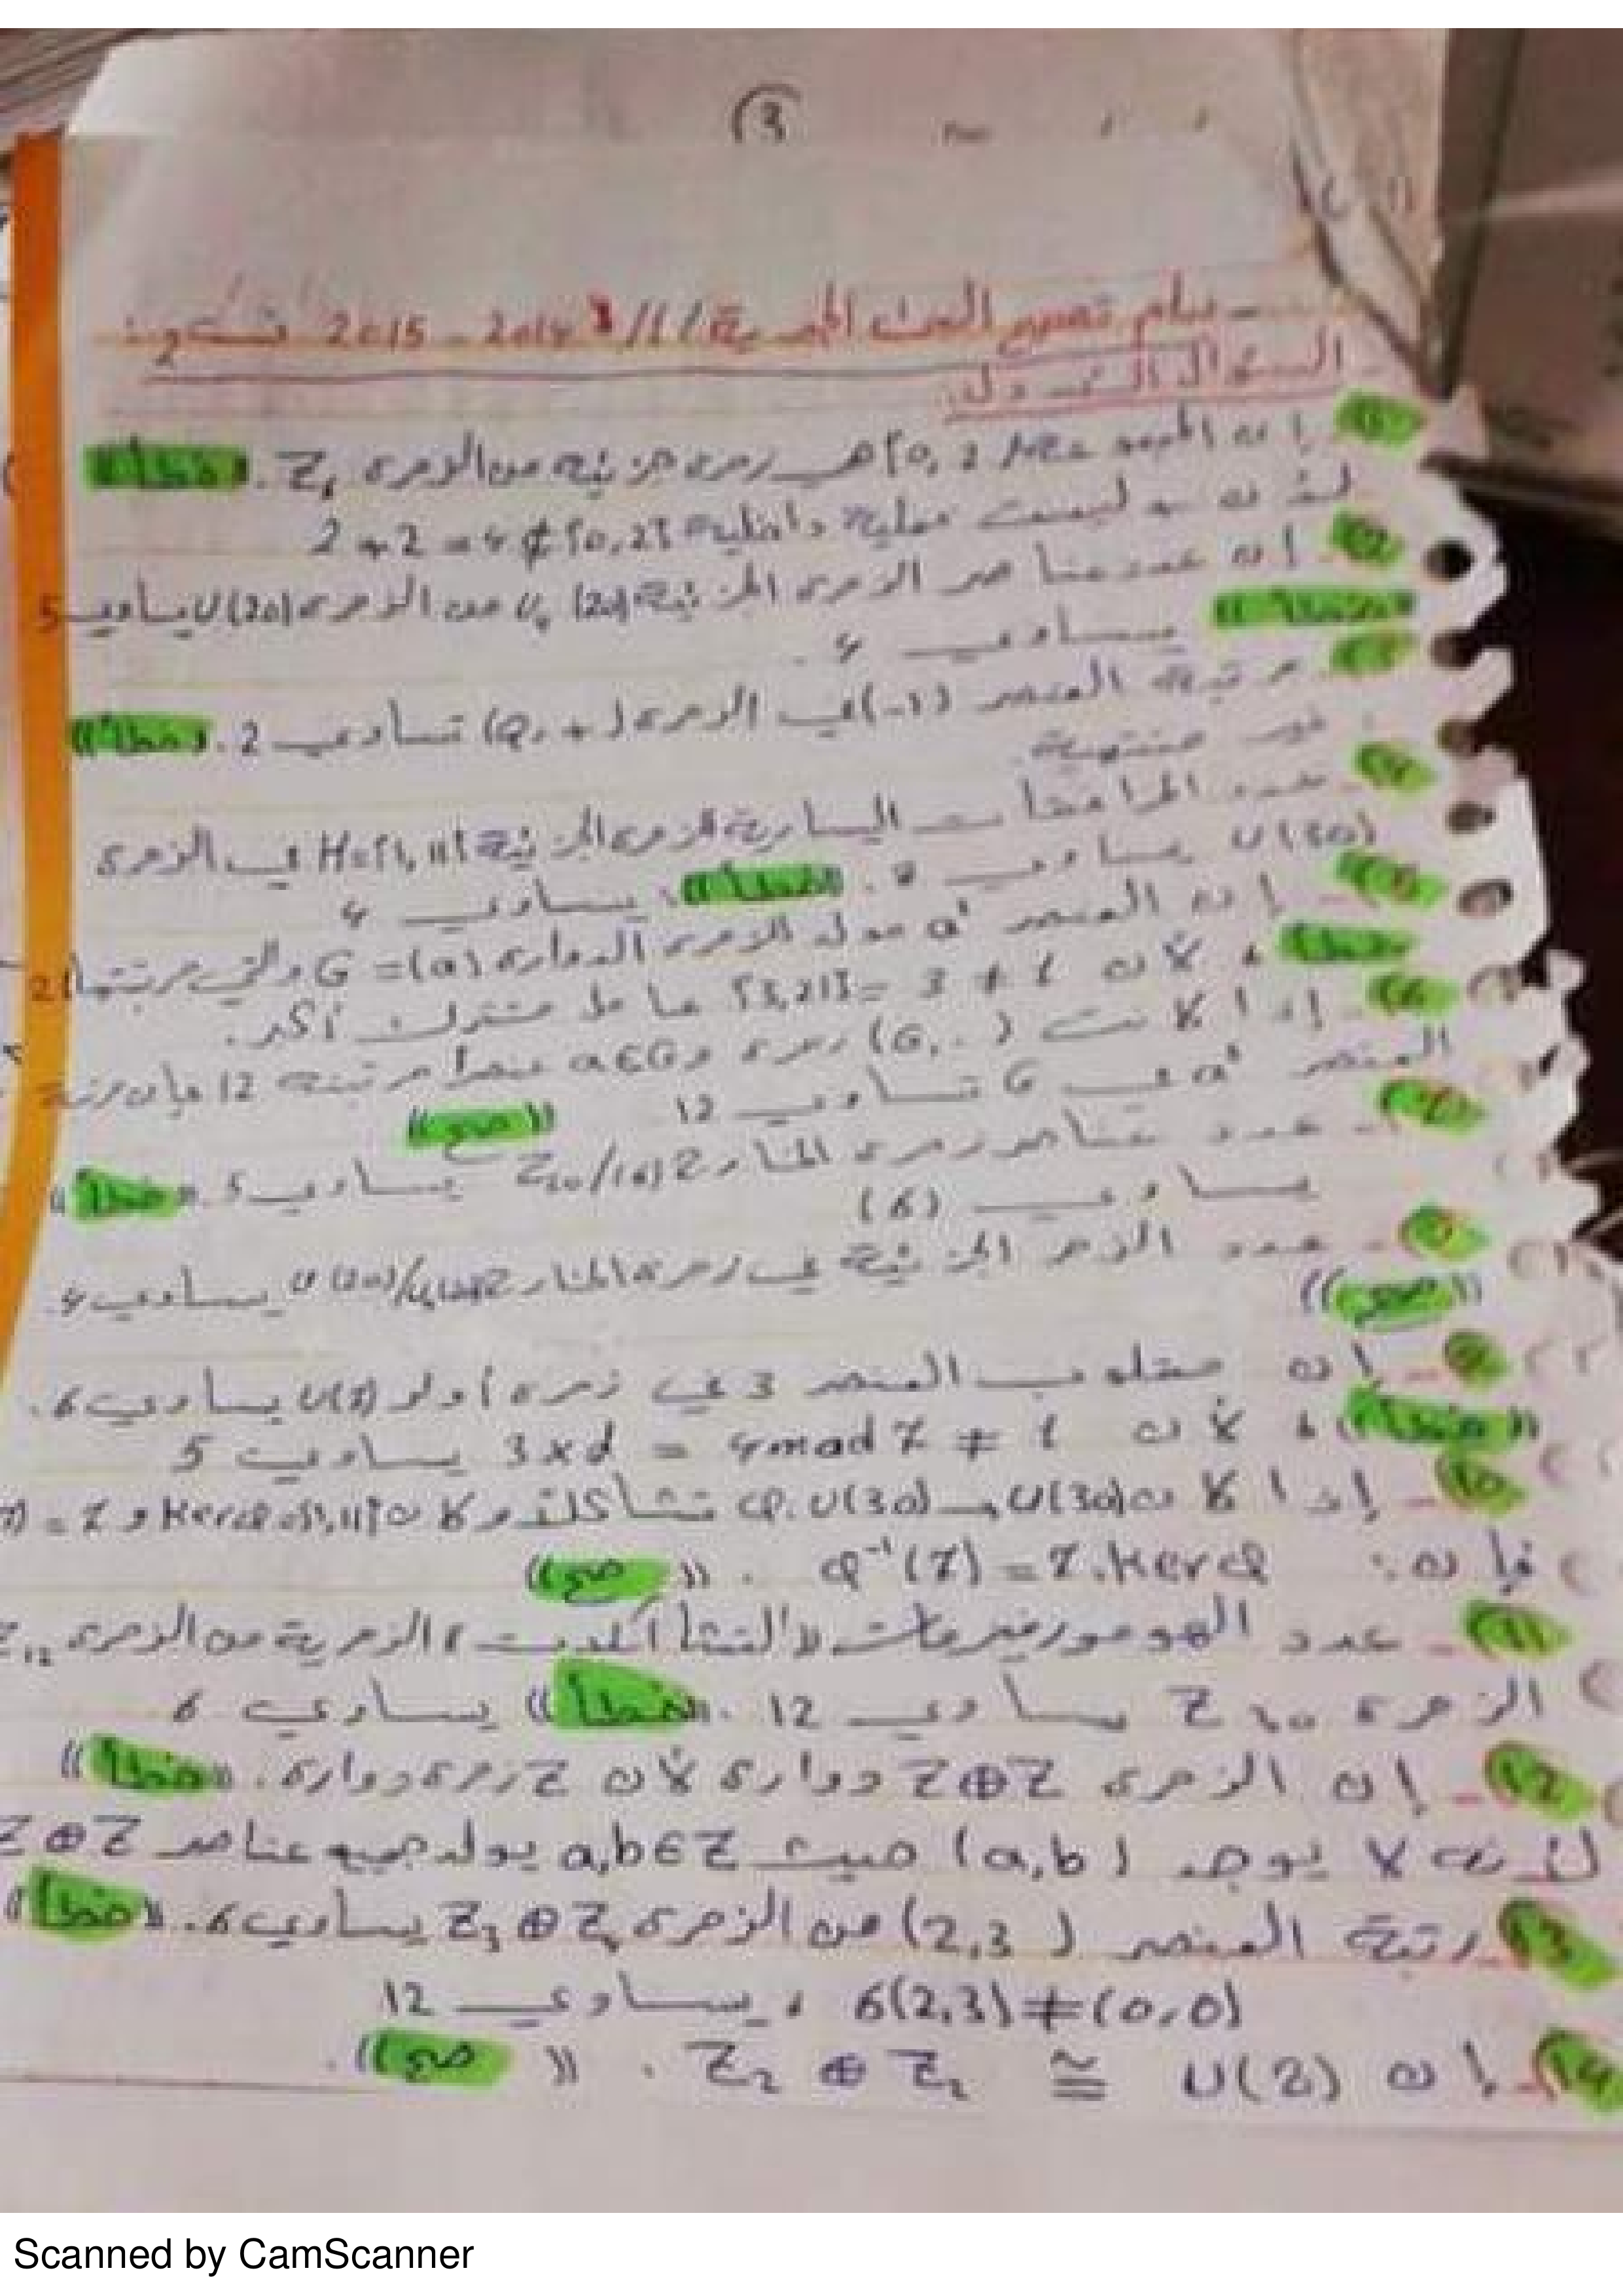 3
سلم تصحيح البنى الجبرية /1/ 2014 - 2015
السؤال الأول:
1- إن المجموعة {0, 2} هي زمرة جزئية من الزمرة Z₆. «خطأ»
لأن + ليست عملية داخلية 2+2=4∉{0,2}
2- إن عدد عناصر الزمرة الجزئية U₄(20) من الزمرة U(20) يساوي 5
«خطأ» يساوي 4.
3- مرتبة العنصر (-1) في الزمرة (Q, +) تساوي 2. «خطأ»
غير منتهية.
4- عدد المرافقات اليسارية للزمرة الجزئية H={1, 11} في الزمرة
U(30) يساوي 8. «خطأ» يساوي 4
5- إن العنصر مولد للزمرة الدوارة G=(a) والتي مرتبتها 21
خطأ، لأن {3,21} = 3 ≠ 1 عامل مشترك أكبر.
6- إذا كانت (G, .) زمرة و a∈G عنصراً مرتبته 12 فإن مرتبة
العنصر في G تساوي 12 «صح»
7- عدد عناصر زمرة الخارج يساوي 5. «خطأ»
يساوي (6)
8- عدد الزمر الجزئية في زمرة الخارج يساوي 4
«صح»
9- إن مقلوب العنصر 3 في زمرة أولر U(7) يساوي 6.
«خطأ»، لأن 3x6 = 4mod 7 ≠ 1 يساوي 5
10- إذا كان φ: U(30)→U(30) تشاكلاً وكان Kerφ={1,11} و = 7
فإن: φ⁻¹(7) = 7.Kerφ . «صح»
11- عدد الهومومورفيزمات "التشاكلات" الزمرية من الزمرة Z₁₂
الزمرة Z₃₀ يساوي 12. «خطأ» يساوي 6
12- إن الزمرة Z⊕Z دوارة لأن Z زمرة دوارة. «خطأ»
لأنه لا يوجد (a,b) حيث a,b∈Z يولد جميع عناصر Z⊕Z
13- رتبة العنصر (2,3) من الزمرة Z₃⊕Z₄ يساوي 6. «خطأ»
6(2,3)≠(0,0) ، يساوي 12
14- إن U(8) ≅ Z₂ ⊕ Z₂ . «صح».
Scanned by CamScanner